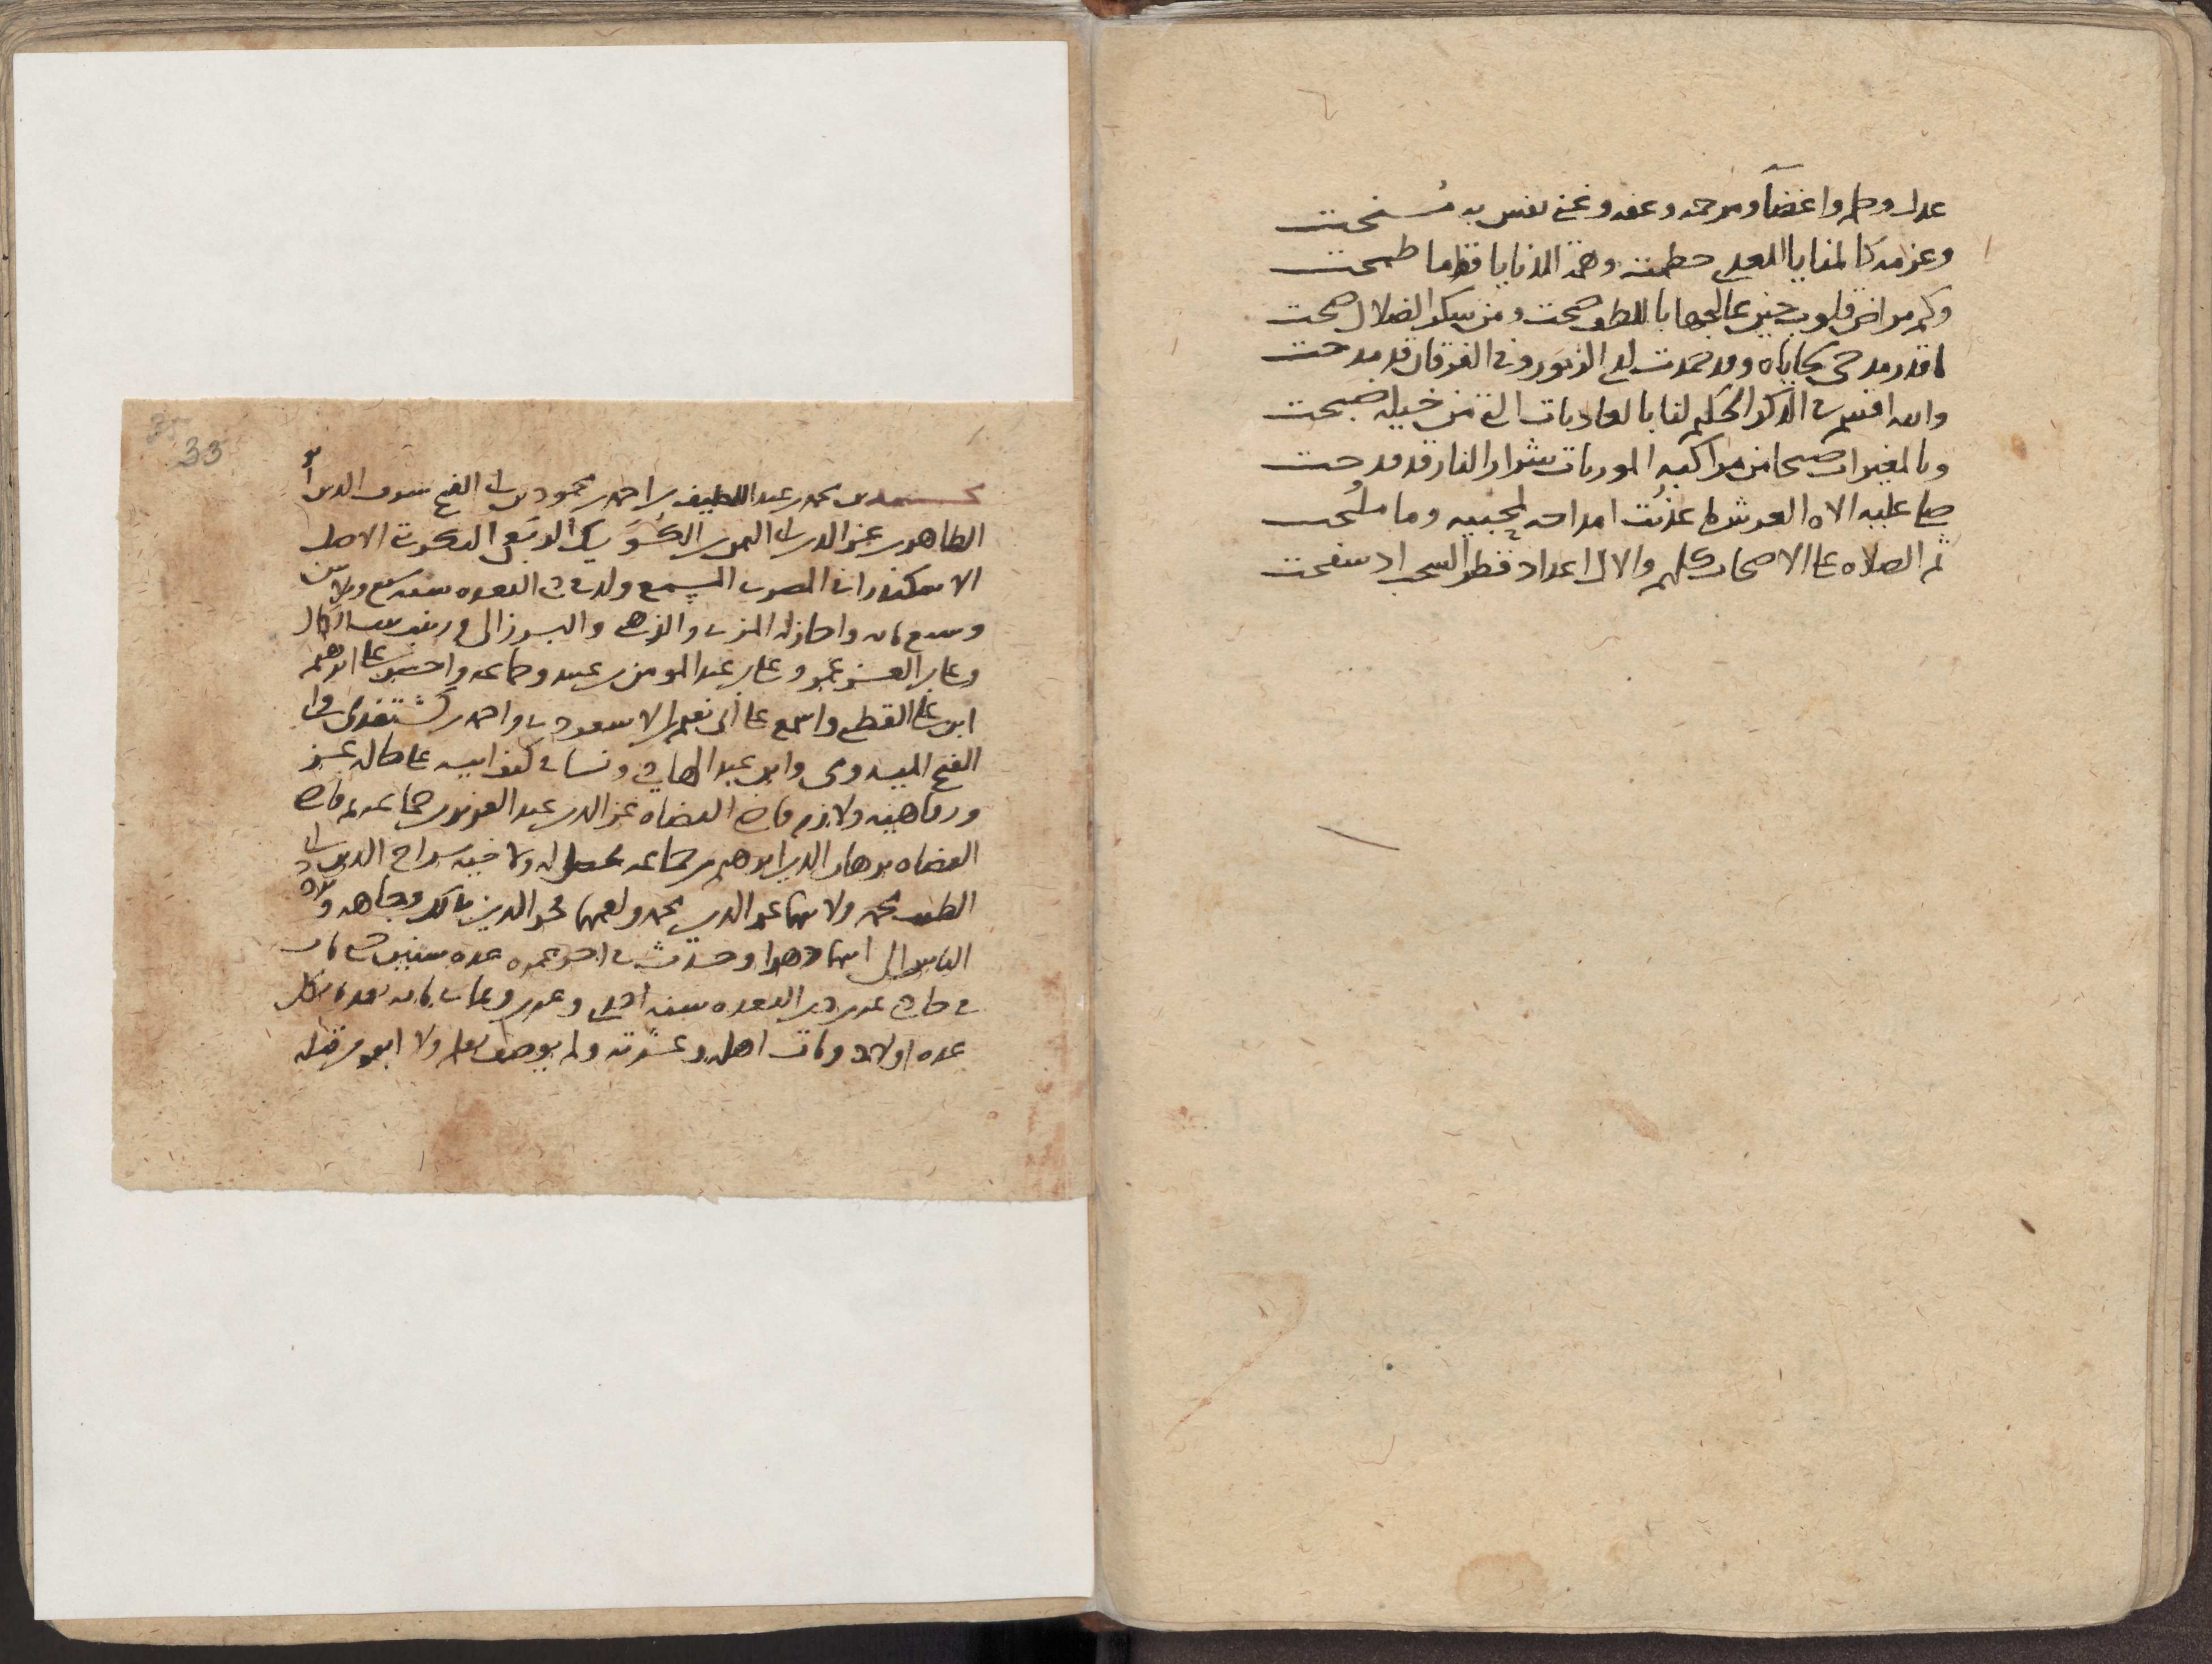 عدل وحلم واغضآ ومرحمه وعفه وغنى نفس به سُنحت
وعزمه كالمنايا للعدى حطمت وهمة للدنايا قط ما طمحت
وكم مراض قلوب حين عالجها باللطف صحت ومن سكر الضلال صحت
ما قدر مدحى سجاياه وقد حمدت لدى الزبور وفى الفرقان قد مدحت
والله اقسم فى الذكر الحكيم لنا بالعاديات التى من خيله ضبحت
وبالمغيرات صبحا من مراكبه الموريات شرار النار قد قدحت
صلى عليه الاه العرش ما عذبُت امداحه لمحبيه وما ملُحت
ثم الصلاه على الاصحاب كلهم والال اعداد قطر السحب اذ سفحت
33
محمد بن محمد بن عبد اللطيف بن احمد بن محمود بن ابى الفتح شرف الدين ابو
الطاهر بن عز الدين ابى اليمن بن الكُوَيك الربَعى التكريتى الاصل
الاسكندرانى المصرى المسمع ولد فى ذى القعده سنه سبع وثلاثين
وسبع مايه واجاز له المزى والذهبى والبرزالى وزينب بنت الكمال
وعلى بن العز عمر وعلى بن عبد المومن بن عبد وجماعه واحضر على ابرهيم
ابن على القطبى واسمع على ابى نعيم الاسعردى واحمد بن كشتغدى وابى
الفتح الميدومى وابن عبد الهادى ونشا فى كنف ابيه على حاله عز
ورفاهيه ولازم قاضى القضاه عز الدين عبد العزيز بن جماعه ثم قاضى
القضاه برهان الدين ابرهيم بن جماعه فحصل له ولاخيه سراج الدين ابى
الطيب محمد ولابنهما عز الدين محمد ولعمهما فخر الدين بذلك وجاهه وثروه
الناس الى ابنها دهرا وحدث فى اخر عمره عده سنين حتى مات
فى حادى عشر ذى القعده سنه احدى وعشرين وثمان مايه بعد ما ثكل
عده اولاد ومات اهله وعشرته ولم يوصف بعلم ولا ابوه من قبله